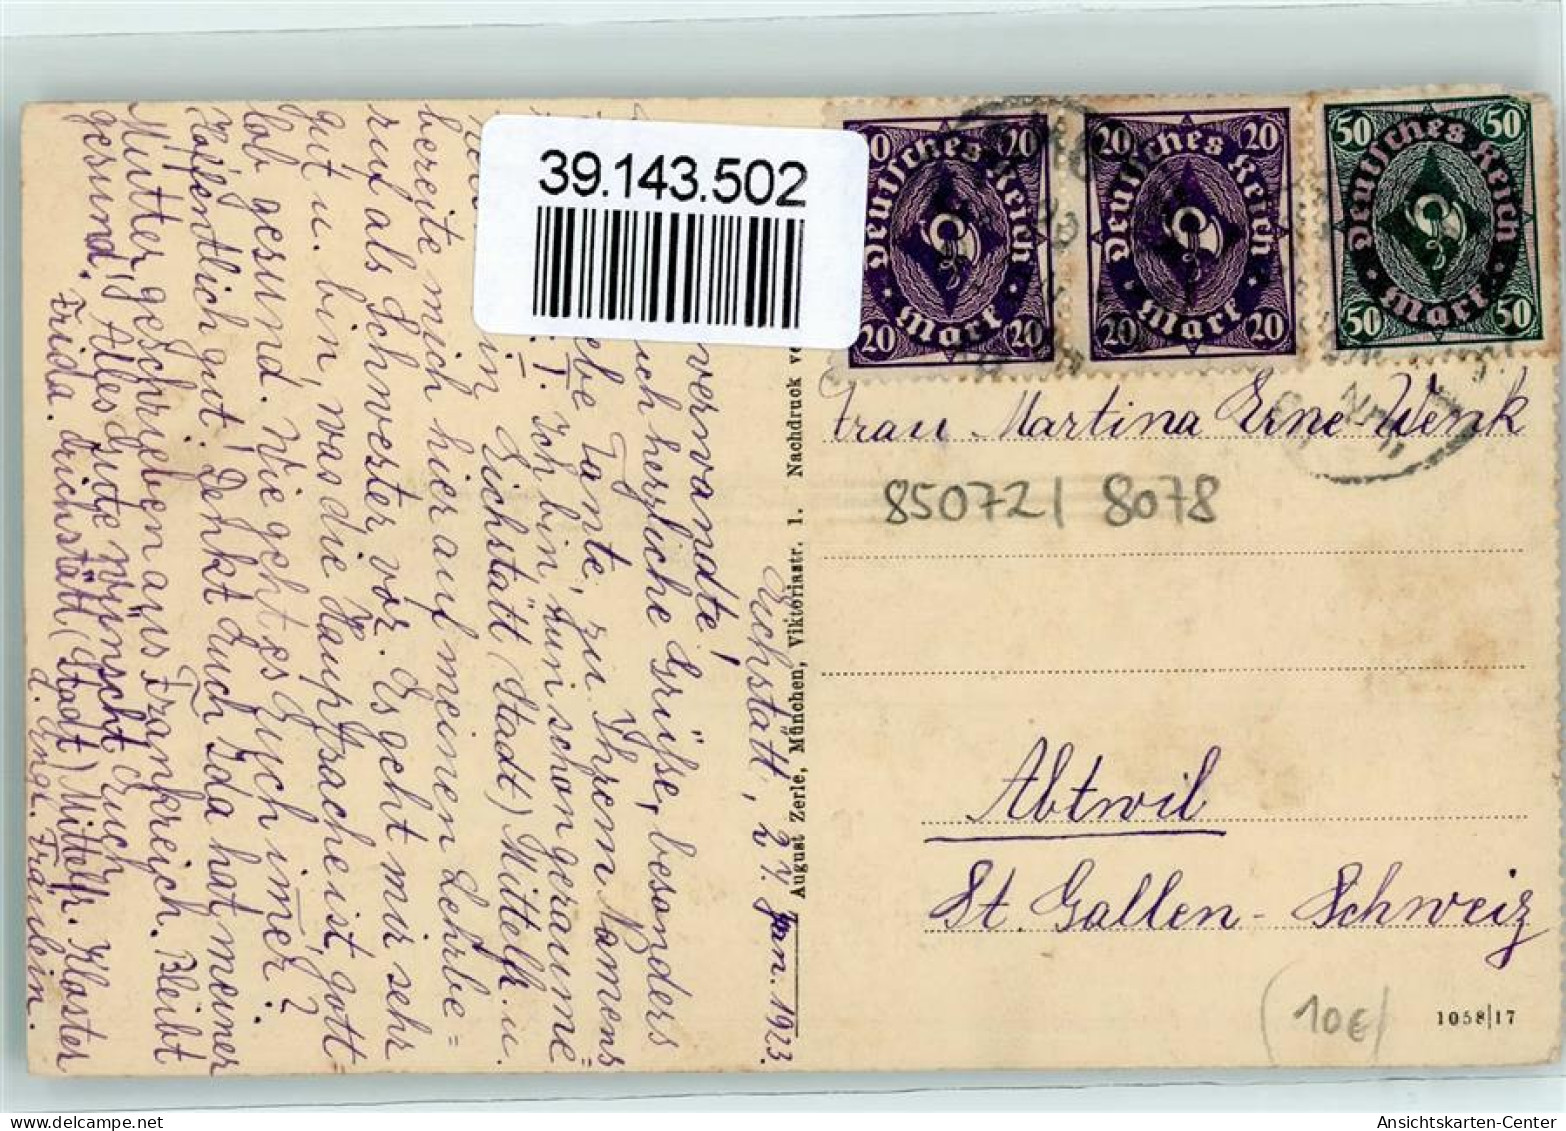 39.143.502
20 20
Deutsches Reich
Mark
20 20
20 20
Deutsches Reich
Mark
20 20
50 50
Deutsches Reich
Mark
50 50
Frau Martina Erne Wenk
850721 8078
Abtwil
St. Gallen - Schweiz
10€
1058/17
August Zerle, München, Viktoriastr. 1. Nachdruck
Eichstätt, 27. Jan. 1923.
verwandte!
ich herzliche Grüße, besonders
Tante, zu Ihrem Namens
T. Ich bin nun schon geraume
in Eichstätt (Stadt) Mittelfr. u.
bereite mich hier auf meinen Lehrbe=
ruf als Schwester vor. Es geht mir sehr
gut u. bin, was die Hauptsache ist, gott=
lob gesund. Wie geht es Euch immer?
Hoffentlich gut! Denkt Euch Ida hat meiner
Mutter geschrieben aus Frankreich. Bleibt
gesund! Alles Gute wünscht Euch
Frida. Eichstätt (Stadt) Mittelfr. Kloster
d. Engl. Fräulein.
Ansichtskarten-Center